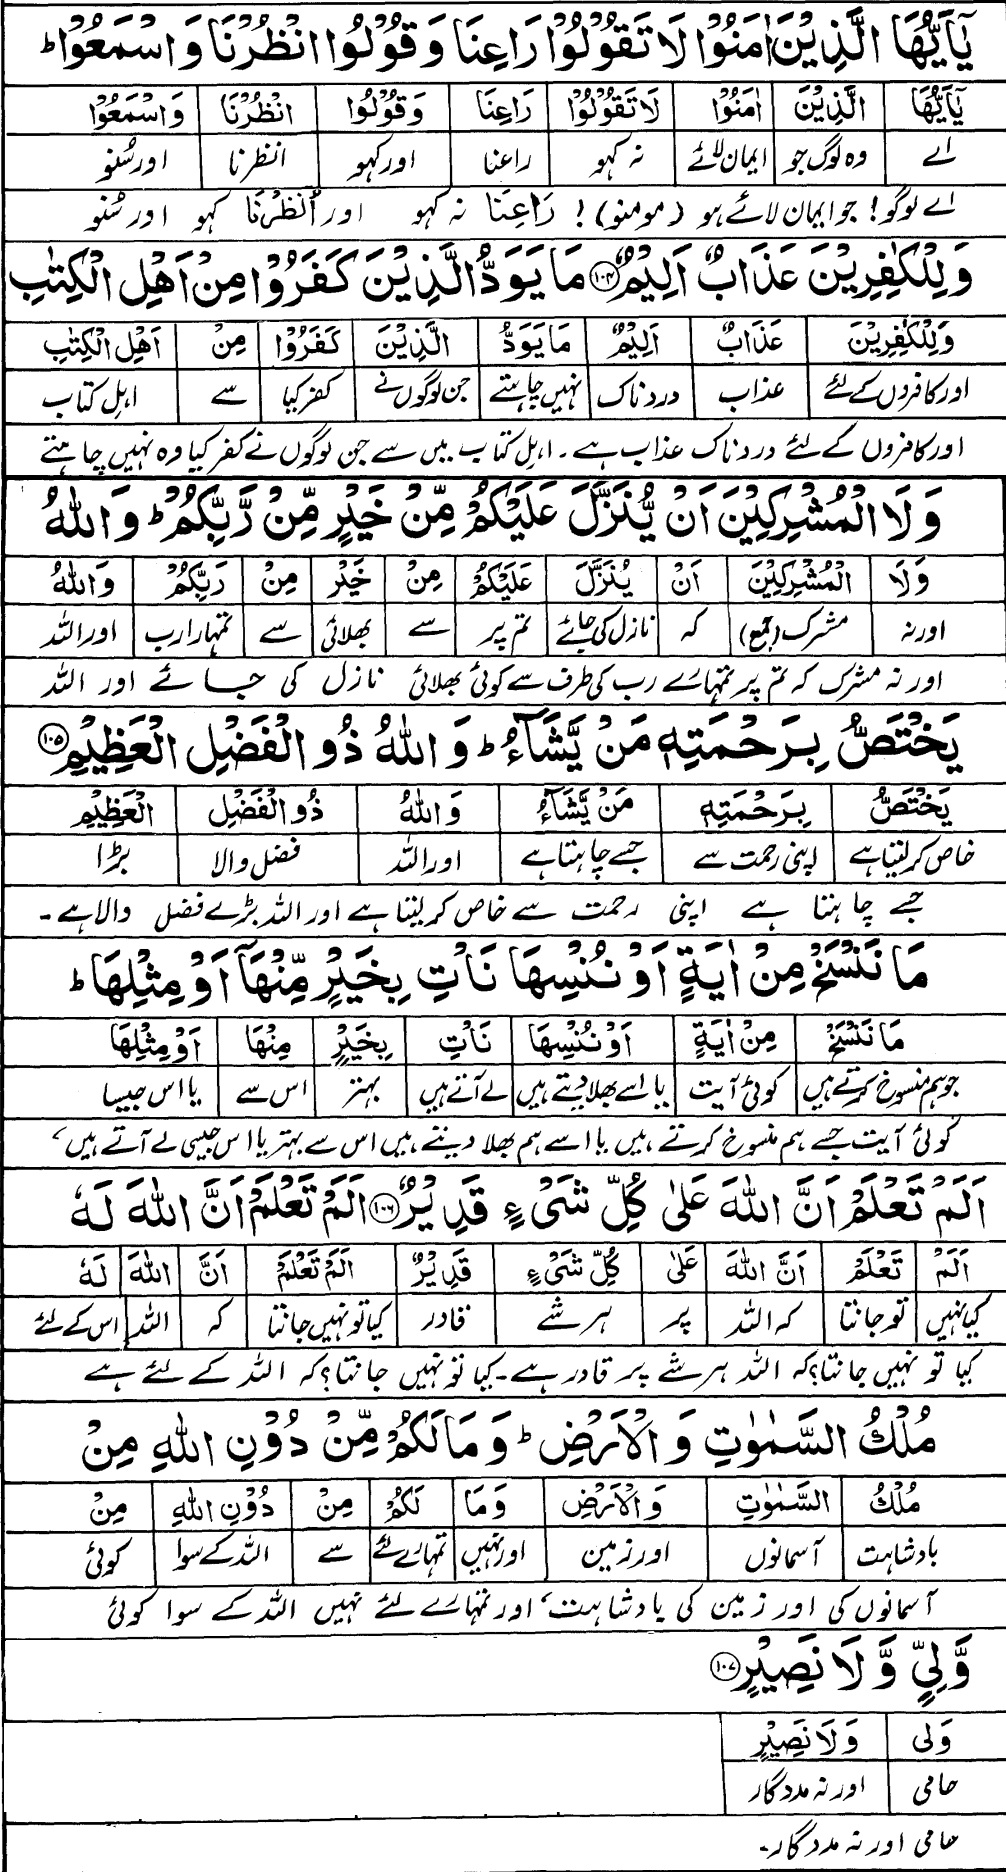 يٰۤاَيُّهَا الَّذِيْنَ اٰمَنُوْا لَا تَقُوْلُوْا رَاعِنَا وَقُوْلُوا انْظُرْنَا وَاسْمَعُوْا ؕ
يٰۤاَيُّهَا الَّذِيْنَ اٰمَنُوْا لَا تَقُوْلُوْا رَاعِنَا وَقُوْلُوا انْظُرْنَا وَاسْمَعُوْا
اے وہ لوگ جو ایمان لائے نہ کہو راعنا اور کہو انظرنا اور سُنو
اے لوگو! جو ایمان لائے ہو (مومنو)! رَاعِنَا نہ کہو اور اُنْظُرْنَا کہو اور سُنو
وَلِلْكٰفِرِيْنَ عَذَابٌ اَلِيْمٌ ﴿۱۰۴﴾ مَا يَوَدُّ الَّذِيْنَ كَفَرُوْا مِنْ اَهْلِ الْكِتٰبِ
وَلِلْكٰفِرِيْنَ عَذَابٌ اَلِيْمٌ مَا يَوَدُّ الَّذِيْنَ كَفَرُوْا مِنْ اَهْلِ الْكِتٰبِ
اور کافروں کے لئے عذاب دردناک نہیں چاہتے جن لوگوں نے کفر کیا سے اہلِ کتاب
اور کافروں کے لئے دردناک عذاب ہے۔ اہلِ کتاب میں سے جن لوگوں نے کفر کیا وہ نہیں چاہتے
وَلَا الْمُشْرِكِيْنَ اَنْ يُّنَزَّلَ عَلَيْكُمْ مِّنْ خَيْرٍ مِّنْ رَّبِّكُمْ ؕ وَاللّٰهُ
وَلَا الْمُشْرِكِيْنَ اَنْ يُنَزَّلَ عَلَيْكُمْ مِنْ خَيْرٍ مِنْ رَبِّكُمْ وَاللّٰهُ
اور نہ مشرک (جمع) کہ نازل کی جائے تم پر سے بھلائی سے تمہارا رب اور اللہ
اور نہ مشرک کہ تم پر تمہارے رب کی طرف سے کوئی بھلائی نازل کی جائے اور اللہ
يَخْتَصُّ بِرَحْمَتِهٖ مَنْ يَّشَآءُ ؕ وَاللّٰهُ ذُو الْفَضْلِ الْعَظِيْمِ ﴿۱۰۵﴾
يَخْتَصُّ بِرَحْمَتِهٖ مَنْ يَّشَآءُ وَاللّٰهُ ذُو الْفَضْلِ الْعَظِيْمِ
خاص کر لیتا ہے اپنی رحمت سے جسے چاہتا ہے اور اللہ فضل والا بڑا
جسے چاہتا ہے اپنی رحمت سے خاص کر لیتا ہے اور اللہ بڑے فضل والا ہے۔
مَا نَنْسَخْ مِنْ اٰيَةٍ اَوْ نُنْسِهَا نَاْتِ بِخَيْرٍ مِّنْهَآ اَوْ مِثْلِهَا ؕ
مَا نَنْسَخْ مِنْ اٰيَةٍ اَوْ نُنْسِهَا نَاْتِ بِخَيْرٍ مِنْهَا اَوْ مِثْلِهَا
جو ہم منسوخ کرتے ہیں کوئی آیت یا اسے بھلا دیتے ہیں لے آتے ہیں بہتر اس سے یا اس جیسا
کوئی آیت جسے ہم منسوخ کرتے ہیں یا اسے ہم بھلا دیتے ہیں اس سے بہتر یا اس جیسی لے آتے ہیں،
اَلَمْ تَعْلَمْ اَنَّ اللّٰهَ عَلٰى كُلِّ شَیْءٍ قَدِيْرٌ ﴿۱۰۶﴾ اَلَمْ تَعْلَمْ اَنَّ اللّٰهَ لَهٗ
اَلَمْ تَعْلَمْ اَنَّ اللّٰهَ عَلٰى كُلِّ شَیْءٍ قَدِيْرٌ اَلَمْ تَعْلَمْ اَنَّ اللّٰهَ لَهٗ
کیا نہیں تو جانتا کہ اللہ پر ہر شے قادر کیا تو نہیں جانتا کہ اللہ اس کے لئے
کیا تو نہیں جانتا؟ کہ اللہ ہر شے پر قادر ہے۔ کیا تو نہیں جانتا؟ کہ اللہ کے لئے ہے
مُلْكُ السَّمٰوٰتِ وَ الْاَرْضِ ؕ وَمَا لَكُمْ مِّنْ دُوْنِ اللّٰهِ مِنْ
مُلْكُ السَّمٰوٰتِ وَالْاَرْضِ وَمَا لَكُمْ مِنْ دُوْنِ اللّٰهِ مِنْ
بادشاہت آسمانوں اور زمین اور نہیں تمہارے لئے سے اللہ کے سوا کوئی
آسمانوں کی اور زمین کی بادشاہت، اور تمہارے لئے نہیں اللہ کے سوا کوئی
وَّلِيٍّ وَّلَا نَصِيْرٍ ﴿۱۰۷﴾
وَلِی وَلَا نَصِيْرٍ
حامی اور نہ مددگار
حامی اور نہ مددگار۔